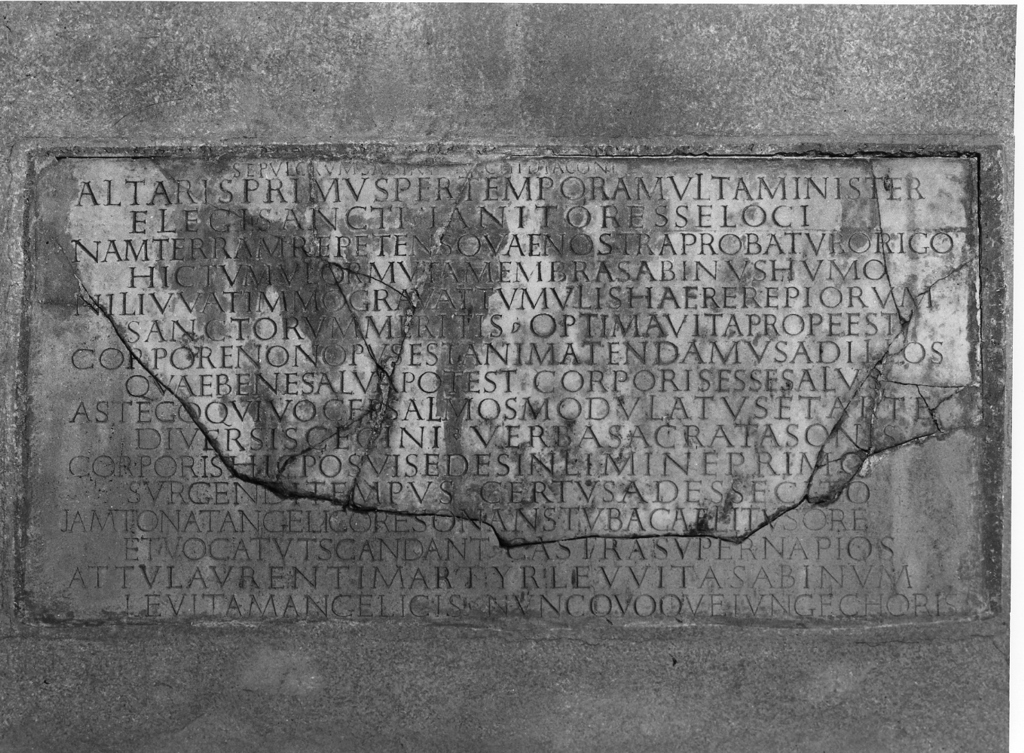 SEPVLCRVM SAB
ALTARIS PRIMVS PER TEMPORA MVLTA MINISTER
ELEGI SANCTI IANITOR ESSE LOCI
NAM TERRAM REPETENS QVAE NOSTRA PROBATVR ORIGO
HIC TVMVLOR MVTA MEMBRA SABINVS HVMO
NIL IVVAT IMMO GRAVAT TVMVLIS HAERERE PIORVM
SANCTORVM MERITIS OPTIMA VITA PROPE EST
CORPORE NON OPVS EST ANIMA TENDAMVS AD ILLOS
QVAE BENE SALVA POTEST CORPORIS ESSE SALVS
AST EGO QVI VOCE PSALMOS MODVLATVS ET ARTE
DIVERSIS CECINI VERBA SACRATA SONIS
CORPORIS HIC POSVI SEDES IN LIMINE PRIMO
SVRGENDI TEMPVS CERTVS ADESSE CITO
IAM TONAT ANGELICO RESONANS TVBA CAELITVS ORE
ET VOCAT VT SCANDANT CASTRA SVPERNA PIOS
AT TV LAVRENTI MARTYR LEVVITA SABINVM
LEVITAM ANGELICIS NVNC QVOQVE IVNGE CHORIS